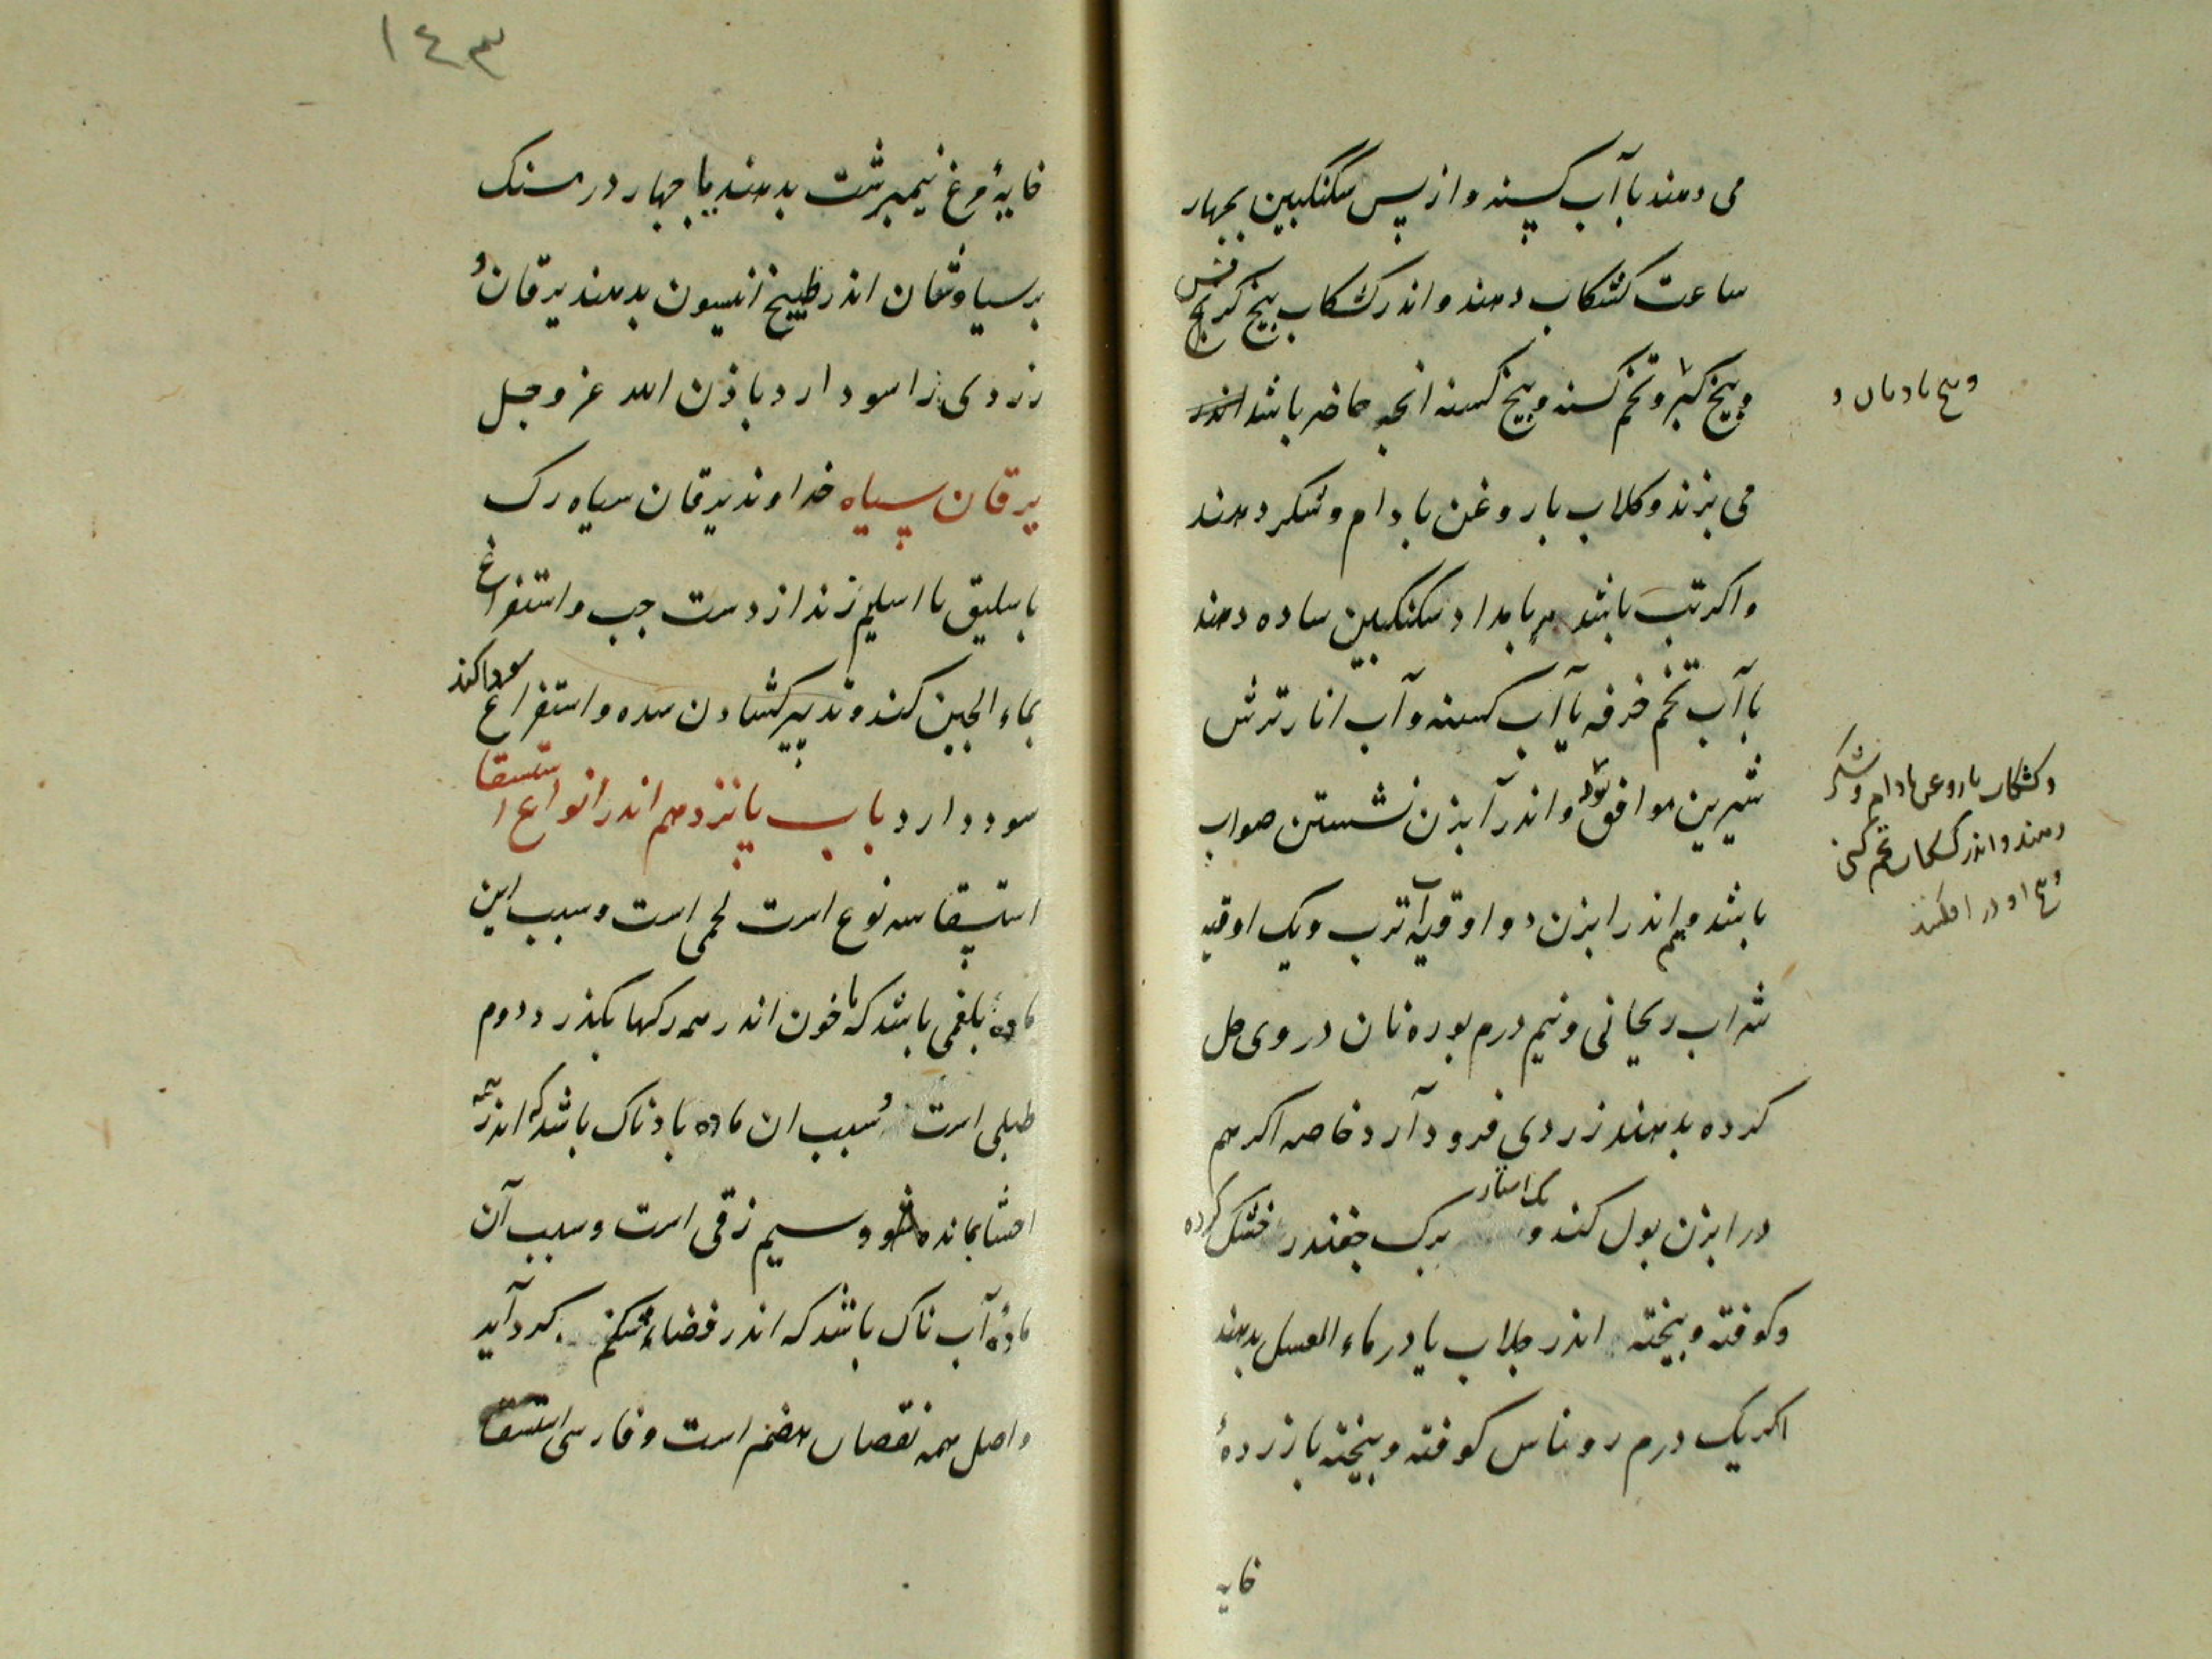 می دهند با آب کسنه و از پس سکنگبین بچهار
ساعت کشکاب دهند و اندر کشکاب بیخ کرفس
و بیخ کبر و تخم کسنه و بیخ کسنه انچه حاضر باشد
و بیخ بادیان و
می پزند و کلاب با روغن بادام و شکر دهند
و اکر تب باشد هر بامداد سکنگبین ساده دهند
با آب تخم خرفه یا آب کسنه و آب انار ترش
شیرین موافق بود و اندر آبزن نشستن صواب
و کشکاب با روغن بادام و شکر
دهند و اندر کشکاب تخم
و بیخ او در افکنند
باشد و هم اندر ابزن دو اوقیه آب ترب و یک اوقیه
شراب ریحانی و نیم درم بوره نان در وی حل
کرده بدهند زردی فرود آرد خاصه اکر هم
در ابزن بول کند و یک استار برک چغندر خشک کرده
و کوفته و بیخته اندر جلاب یا در ماء العسل بدهند
اکر یک درم روناس کوفته و بیخته با زردهٔ
خایه
١٤٣
خایهٔ مرغ نیمبرشت بدهند یا چهار درمسنک
برسیاوشان اندر طبیخ انیسون بدهند یرقان و
زردی را سود دارد باذن الله عز و جل
یرقان سیاه خداوند یرقان سیاه رک
باسلیق یا اسیلم زند از دست چپ و استفراغ
بماء الجبن کند و تدبیر کشادن سده و استفراغ سودا کند
سود دارد باب پانزدهم اندر انواع استسقا
استسقا سه نوع است لحمی است و سبب این
مادهٔ بلغمی باشد که با خون اندر همه رکها بکذرد دوم
طبلی است و سبب ان ماده بادناک باشد که اندر همه
احشا بمانده شود سیم زقی است و سبب آن
مادهٔ آب ناک باشد که اندر فضاء شکم کرد آید
و اصل همه نقصان هضم است و فارسی استسقا